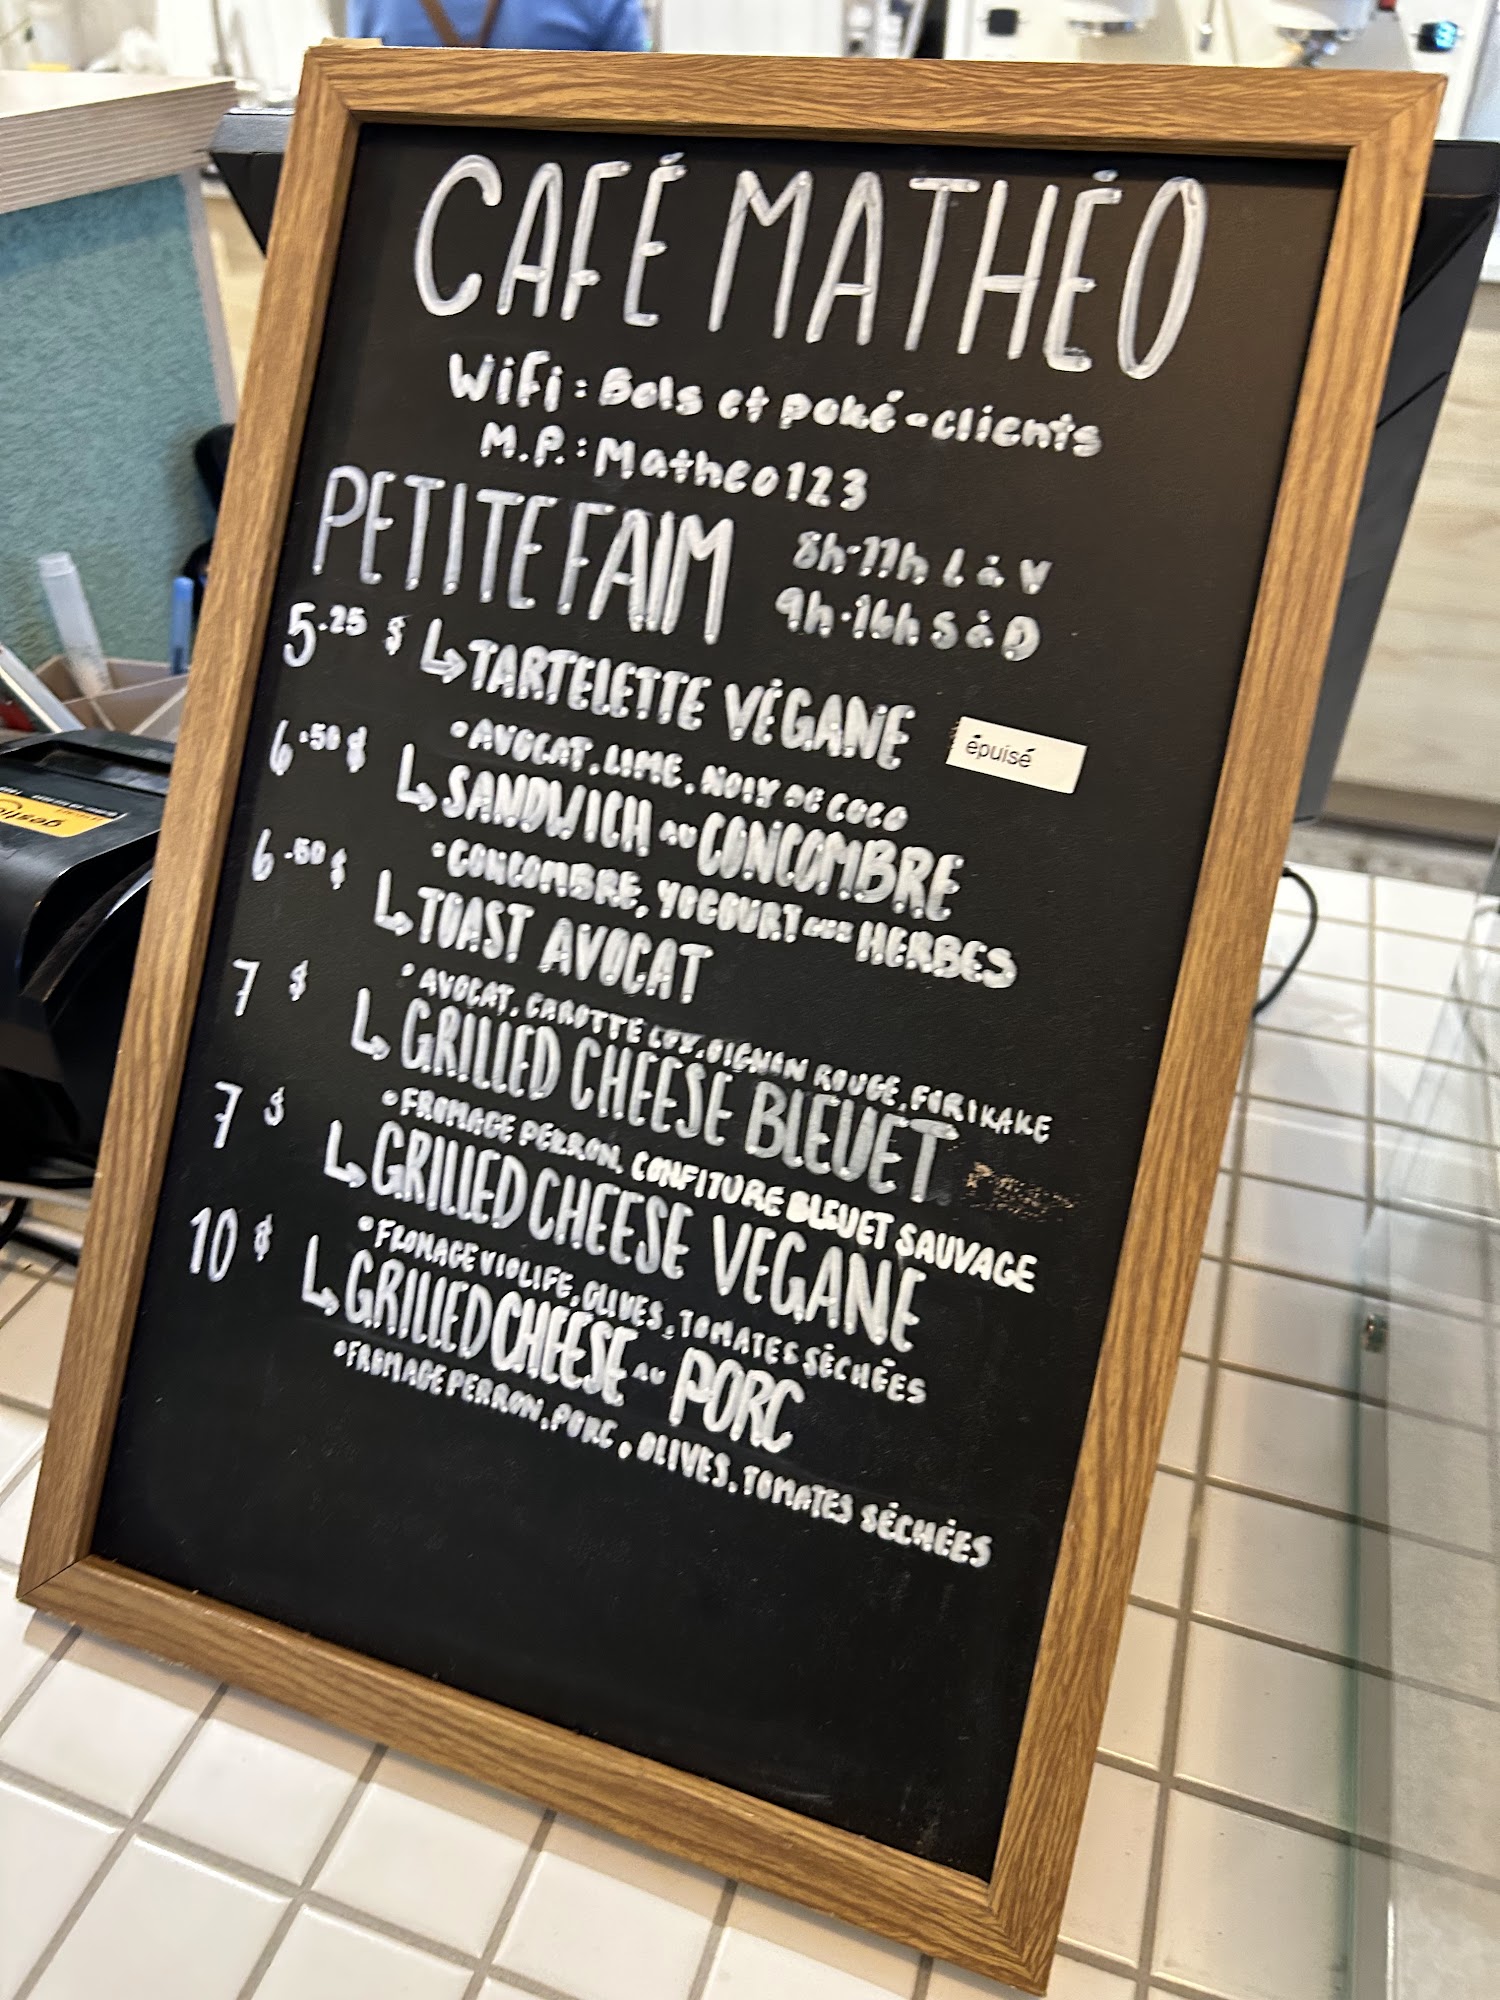 CAFÉ MATHÉO
WiFi : Bols et poké-clients
M.P. : Matheo123
PETITE FAIM
8h-17h L à V
9h-16h S à D
5.25 $ ↳ TARTELETTE VÉGANE
épuisé
• AVOCAT, LIME, NOIX DE COCO
6.50 $ ↳ SANDWICH AU CONCOMBRE
• CONCOMBRE, YOGOURT AUX HERBES
6.50 $ ↳ TOAST AVOCAT
• AVOCAT, CAROTTE LOX, OIGNON ROUGE, FURIKAKE
7 $ ↳ GRILLED CHEESE BLEUET
• FROMAGE PERRON, CONFITURE BLEUET SAUVAGE
7 $ ↳ GRILLED CHEESE VEGANE
• FROMAGE VIOLIFE, OLIVES, TOMATES SÉCHÉES
10 $ ↳ GRILLED CHEESE AU PORC
• FROMAGE PERRON, PORC, OLIVES, TOMATES SÉCHÉES